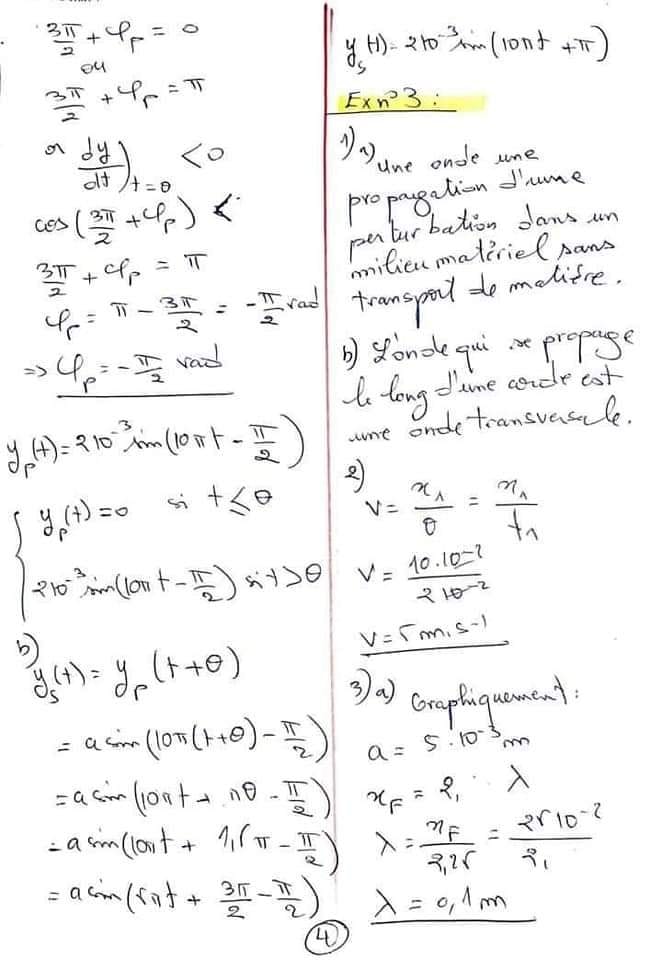 3π/2 + φ_p = 0
ou
3π/2 + φ_p = π
or dy/dt)_t=θ < 0
cos(3π/2 + φ_p) <
3π/2 + φ_p = π
φ_p = π - 3π/2 = -π/2 rad
=> φ_p = -π/2 rad
y_p(t) = 2 10⁻³ sin(10πt - π/2)
y_p(t) = 0 si t ≤ θ
2 10⁻³ sin(10πt - π/2) si t > θ
b)
y_s(t) = y_p(t + θ)
= a sin(10π(t+θ) - π/2)
= a sin(10πt + πθ - π/2)
= a sin(10πt + 1,5π - π/2)
= a sin(5πt + 3π/2 - π/2)
y_s(t) = 2 10⁻³ sin(10πt + π)
Ex n°3 :
1) a) une onde une
propagation d'une
perturbation dans un
milieu matériel sans
transport de matière.
b) L'onde qui se propage
le long d'une corde est
une onde transversale.
2)
V = x₁/θ = x₁/t₁
V = 10.10⁻²/2 10⁻²
V = 5 m.s⁻¹
3) a) Graphiquement :
a = 5.10⁻³ m
x_F = 2, λ
λ = x_F/2,25 = 25 10⁻²/2,
λ = 0,1 m
4